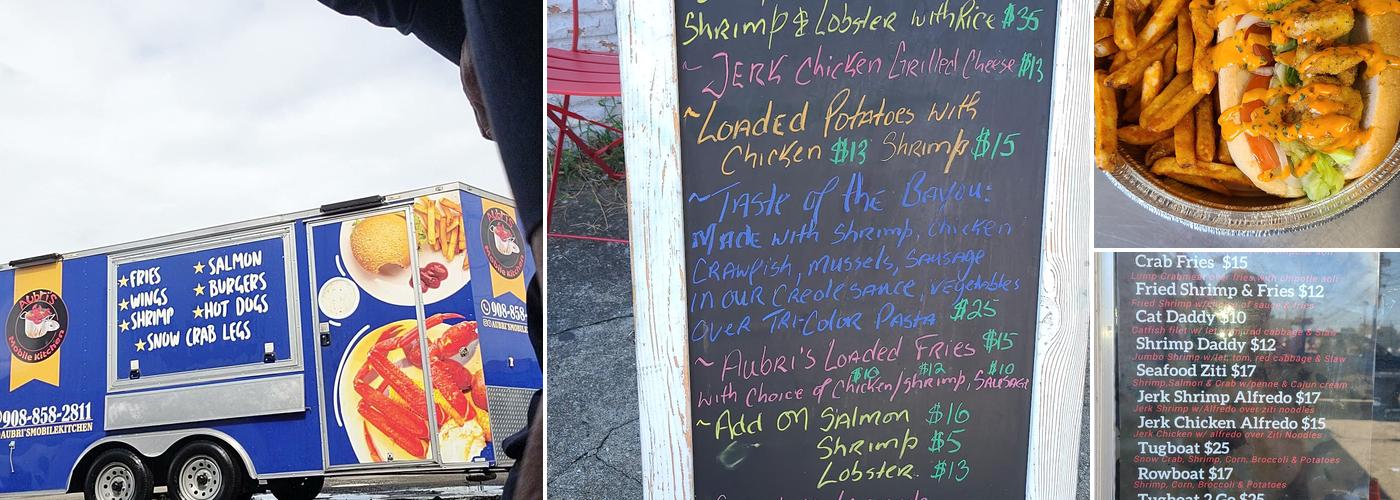 Aubri's
Mobile Kitchen
FRIES
WINGS
SHRIMP
SALMON
BURGERS
HOT DOGS
SNOW CRAB LEGS
908-858-2811
AUBRI'SMOBILEKITCHEN
Aubri's
Mobile Kitchen
908-858-
Shrimp & Lobster with Rice $35
~ Jerk Chicken Grilled Cheese $13
~Loaded Potatoes with
Chicken $13 Shrimp $15
~Taste of the Bayou:
Made with Shrimp, Chicken
Crawfish, Mussels, Sausage
in our Creole sauce, vegetables
over Tri-Color Pasta $25
~Aubri's Loaded Fries $15
$10 $12 $10
with Choice of Chicken/shrimp, Sausage
~Add on Salmon $16
Shrimp $5
Lobster $13
Crab Fries $15
Lump Crabmeat over fries with chipotle aoli
Fried Shrimp & Fries $12
Fried Shrimp w/choice of sauce & fries
Cat Daddy $10
Catfish filet w/ let, tom, red cabbage & Slaw
Shrimp Daddy $12
Jumbo Shrimp w/let, tom, red cabbage & Slaw
Seafood Ziti $17
Shrimp, Salmon & Crab w/penne & Cajun cream
Jerk Shrimp Alfredo $17
Jerk Shrimp w/Alfredo over ziti noodles
Jerk Chicken Alfredo $15
Jerk Chicken w/ alfredo over Ziti Noodles
Tugboat $25
Snow Crab, Shrimp, Corn, Broccoli & Potatoes
Rowboat $17
Shrimp, Corn, Broccoli & Potatoes
Tugboat 2 Go $25